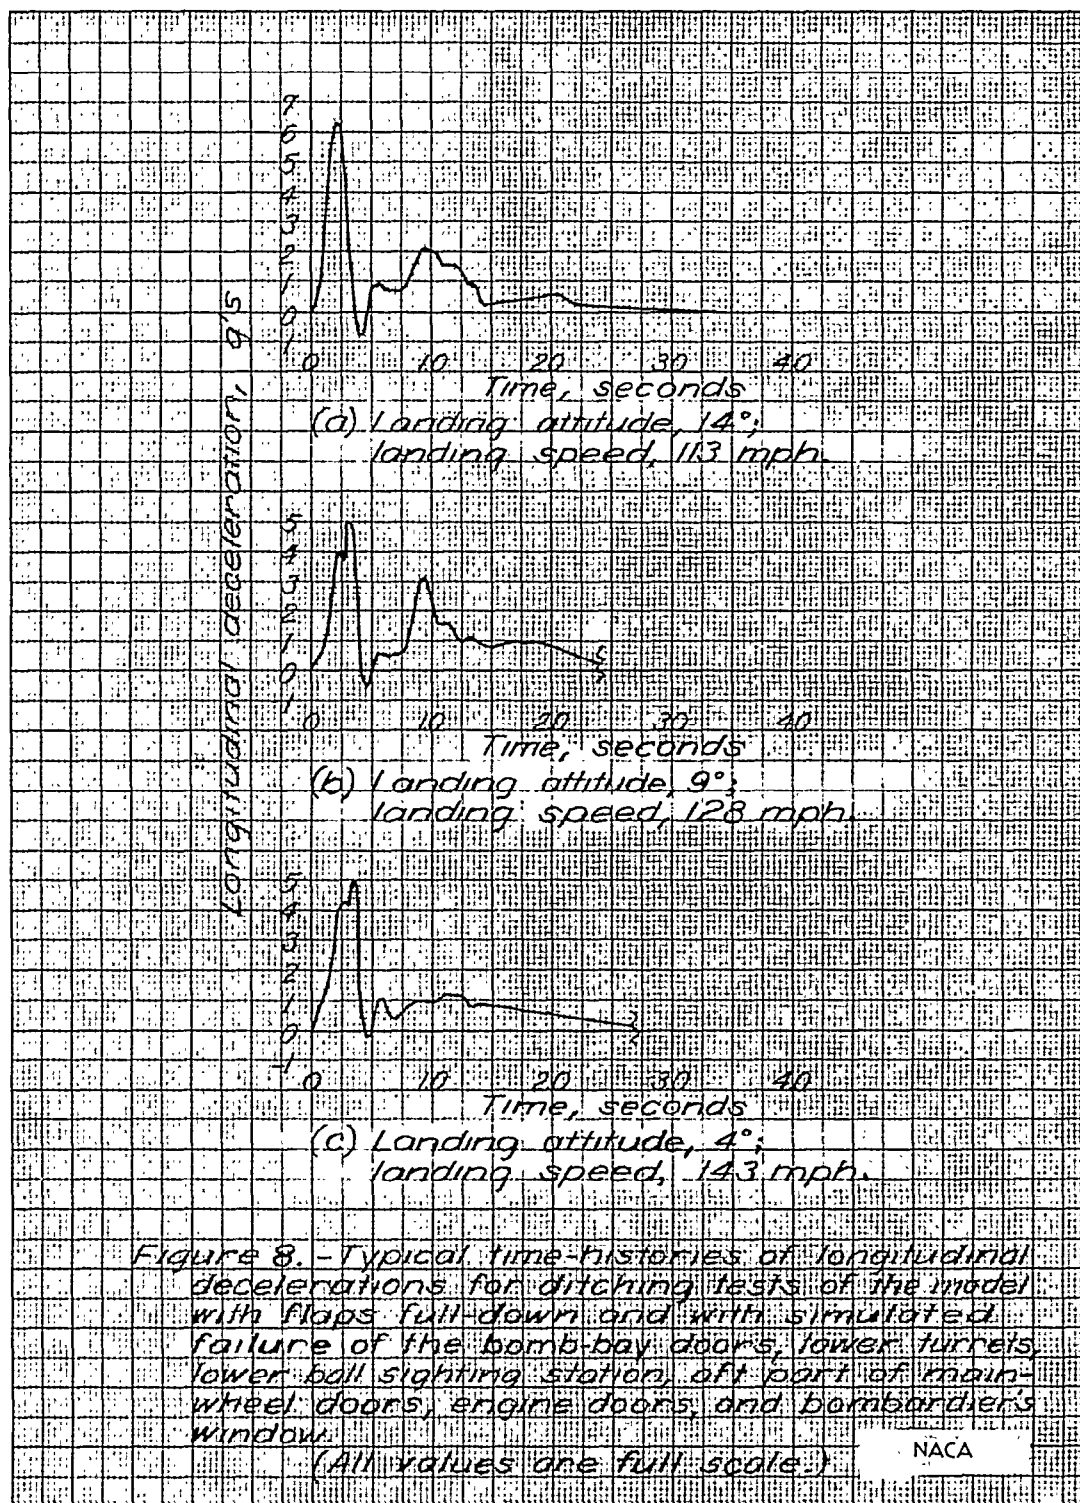 Longitudinal deceleration, g's
7
6
5
4
3
2
1
0
-1
0 10 20 30 40
Time, seconds
(a) Landing attitude, 14°;
landing speed, 113 mph.
5
4
3
2
1
0
-1
0 10 20 30 40
Time, seconds
(b) Landing attitude, 9°;
landing speed, 128 mph.
5
4
3
2
1
0
-1
0 10 20 30 40
Time, seconds
(c) Landing attitude, 4°;
landing speed, 143 mph.
Figure 8. - Typical time-histories of longitudinal
decelerations for ditching tests of the model
with flaps full-down and with simulated
failure of the bomb-bay doors, lower turrets,
lower ball sighting station, aft part of main-
wheel doors, engine doors, and bombardier's
window.
(All values are full scale.)
NACA